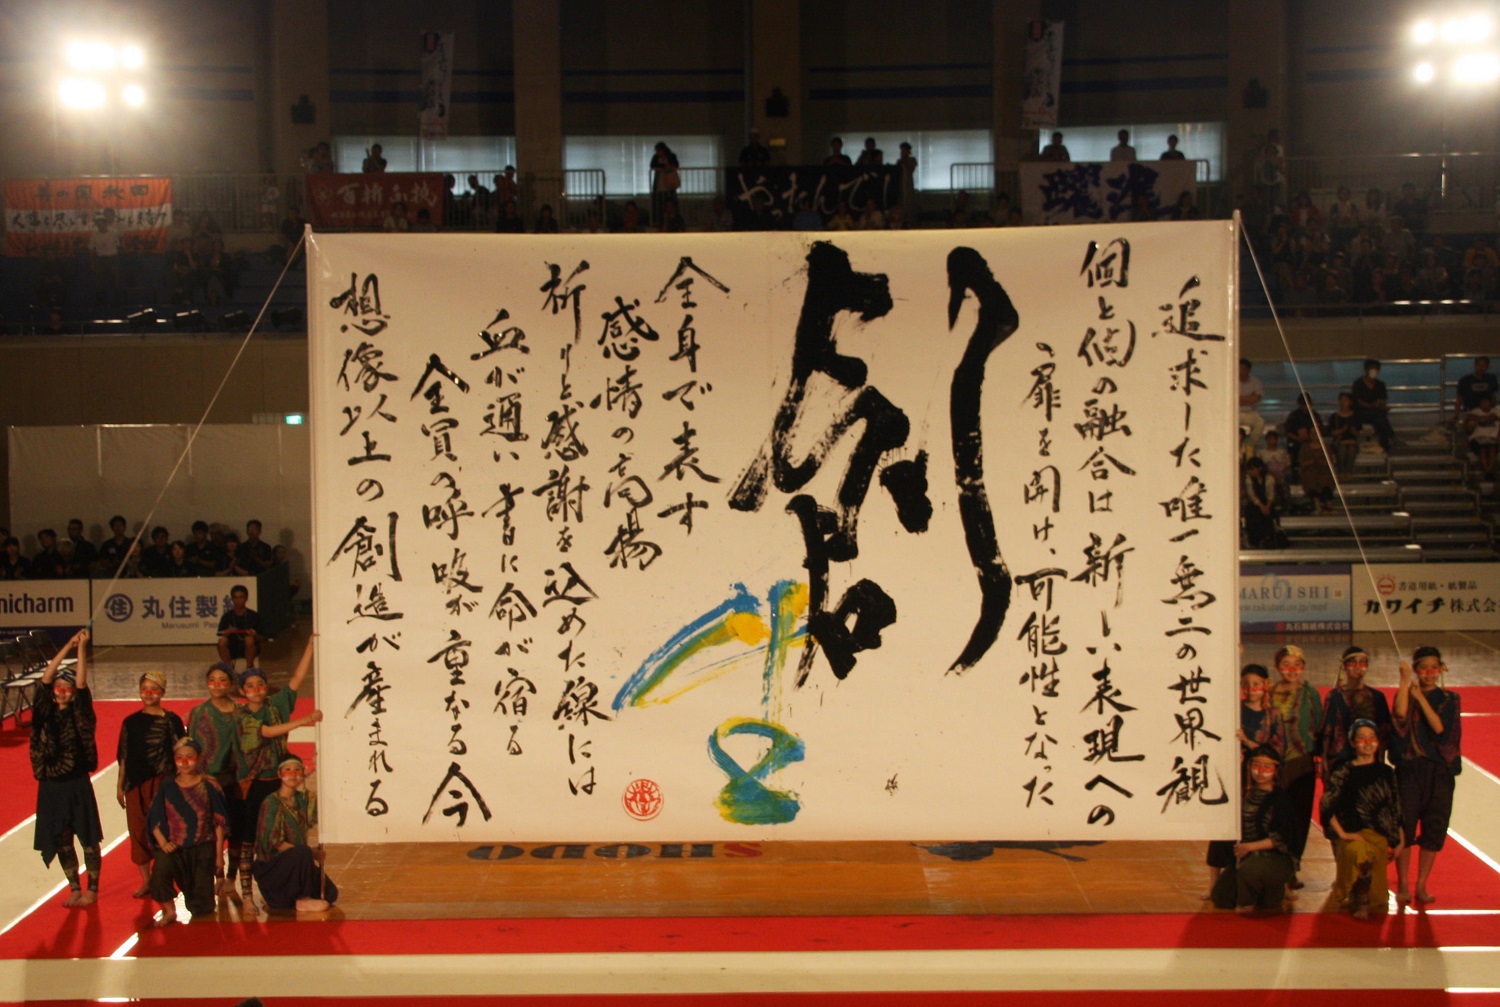 追求した唯一無二の世界観
個と個の融合は新しい表現への
扉を開け、可能性となった
創
全身で表す
感情の高揚
祈りと感謝を込めた線には
血が通い書に命が宿る
全員の呼吸が重なる今
想像以上の創造が産まれる
やったんでし
nicharm
丸住製紙
Marusumi Pa
MARUISHI
丸石製紙株式会社
書道用紙・紙製品
カワイチ株式会
SHODO